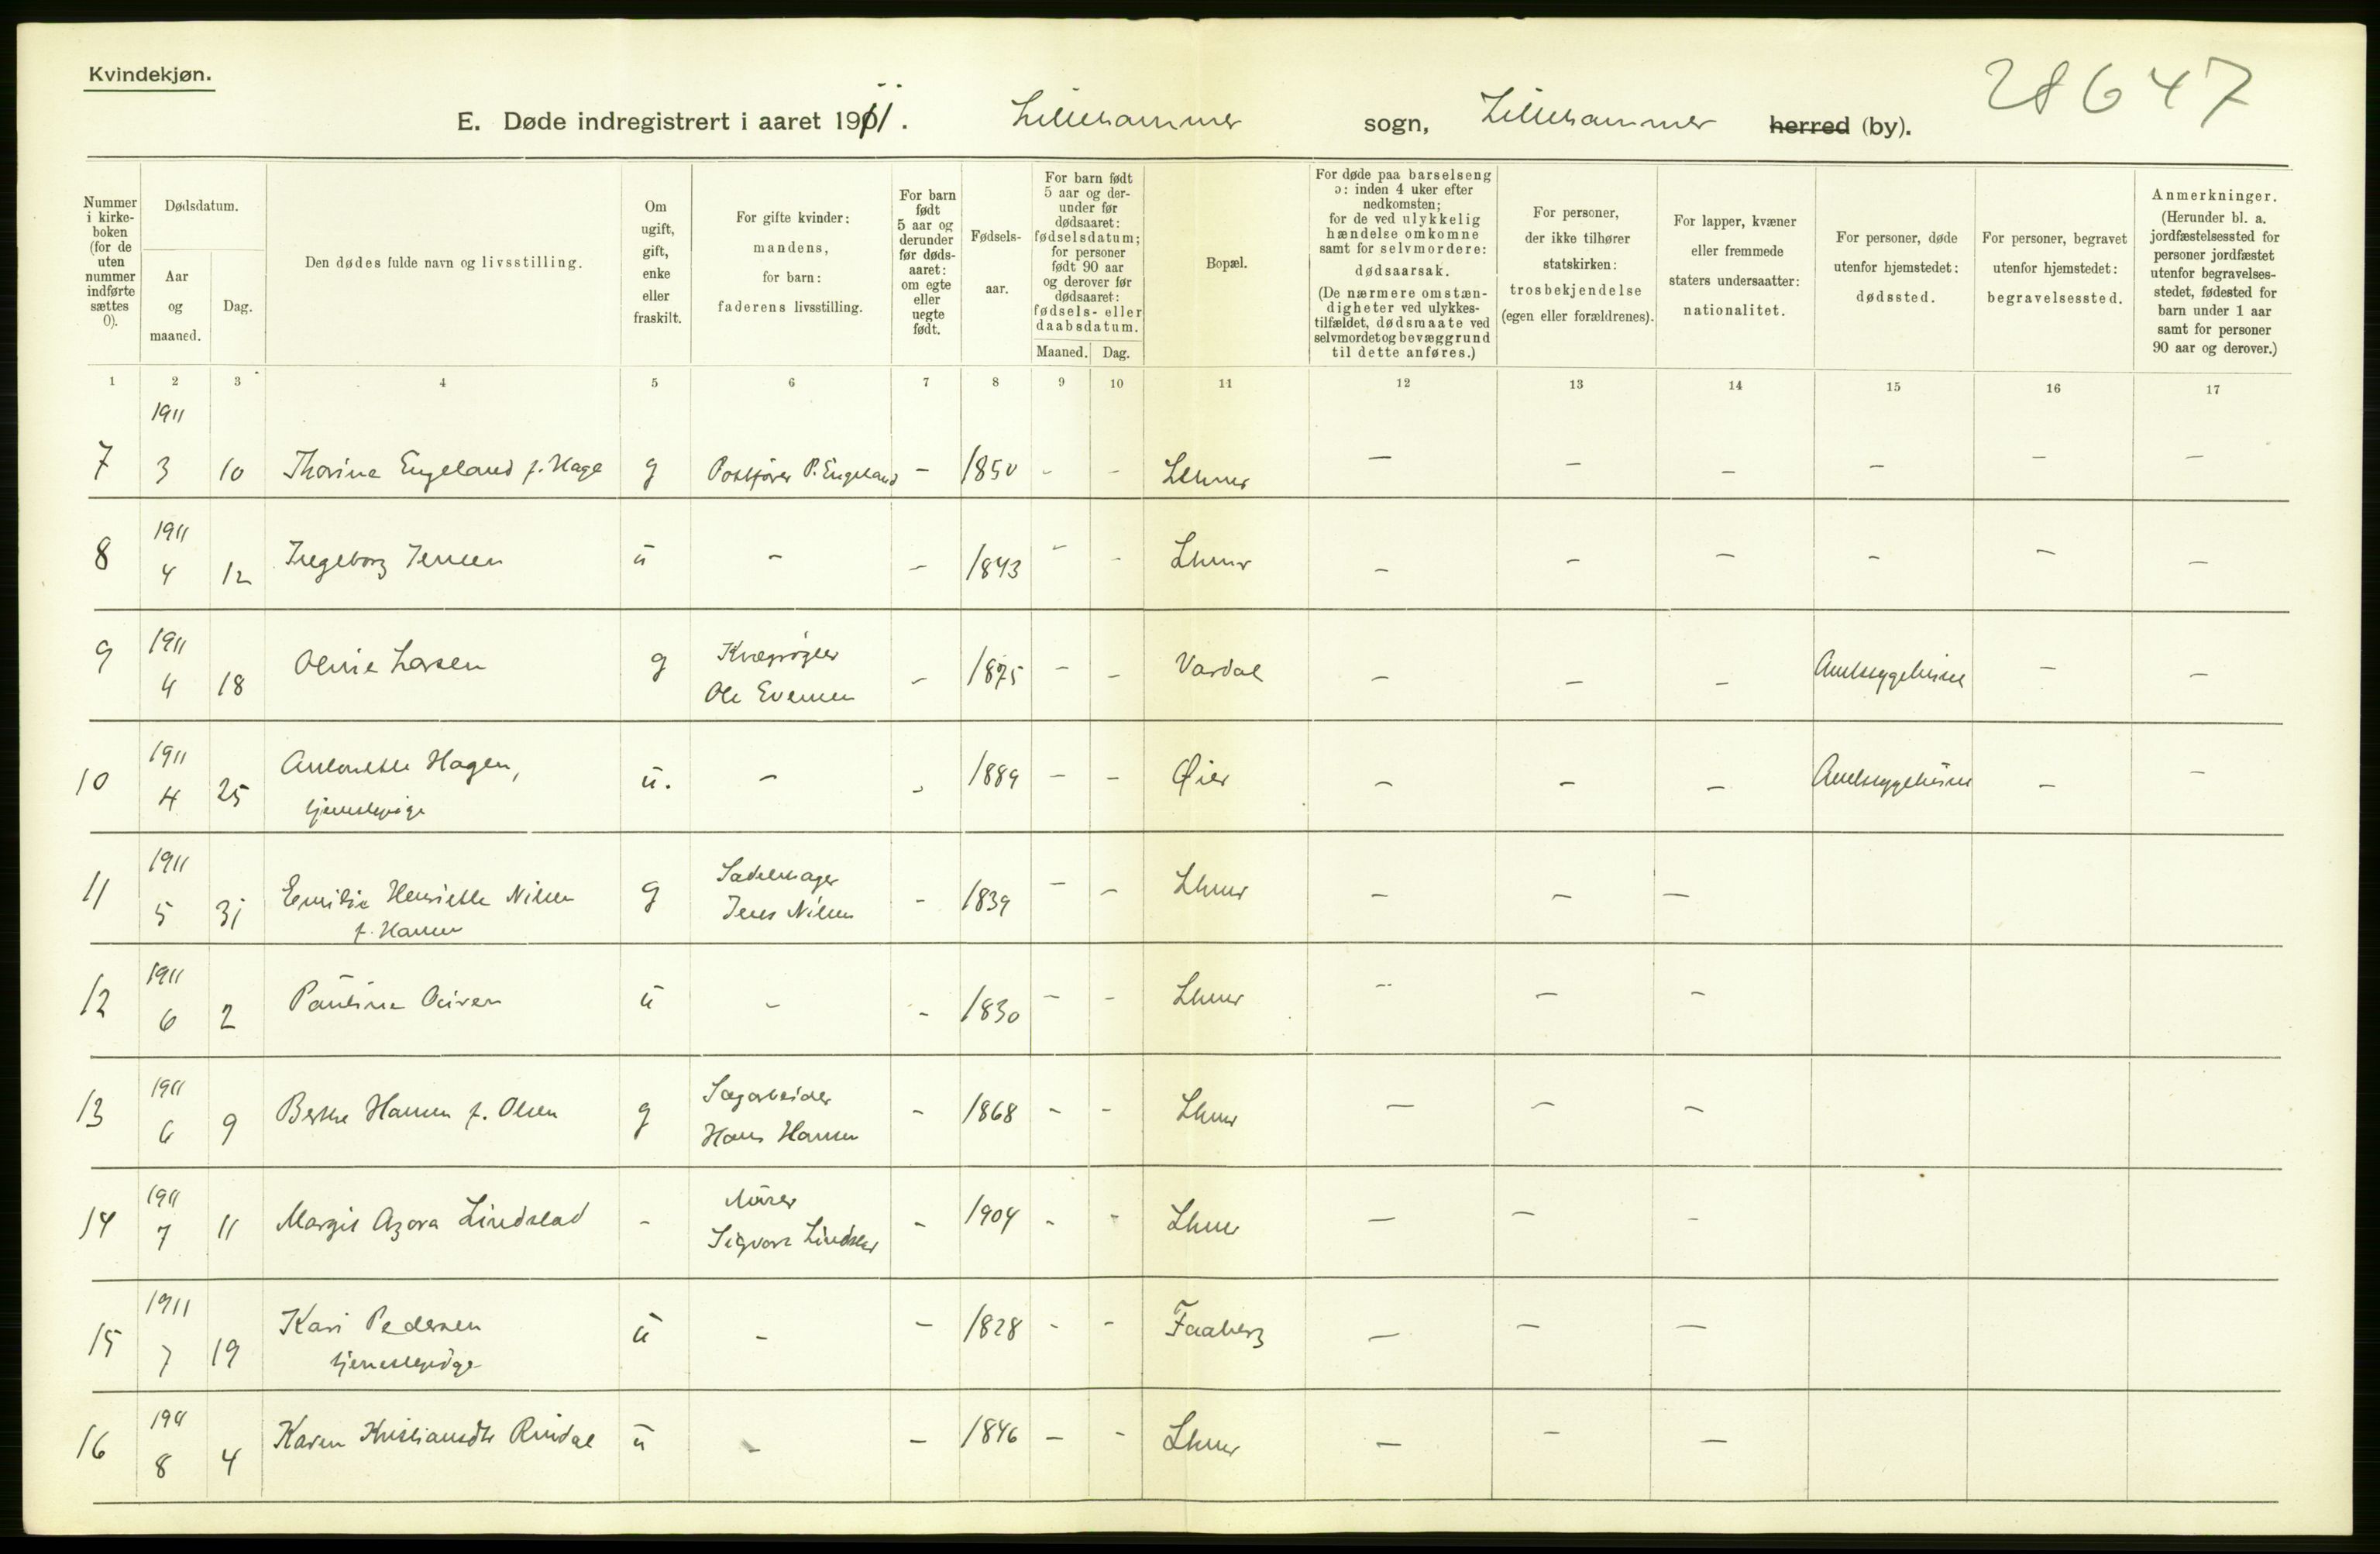 Kvindekjøn.
28647
E. Døde indregistrert i aaret 1911. Lillehammer sogn, Lillehammer herred (by).
Nummer i kirke-boken (for de uten nummer indførte sættes 0).
Dødsdatum.
Aar og maaned.
Dag.
Den dødes fulde navn og livsstilling.
Om ugift, gift, enke eller fraskilt.
For gifte kvinder: mandens, for barn: faderens livsstilling.
For barn født 5 aar og derunder før døds-aaret: om egte eller uegte født.
Fødsels-aar.
For barn født 5 aar og der-under før dødsaaret: fødselsdatum; for personer født 90 aar og derover før dødsaaret: fødsels- eller daabsdatum.
Maaned. Dag.
Bopæl.
For døde paa barselseng ɔ: inden 4 uker efter nedkomsten; for de ved ulykkelig hændelse omkomne samt for selvmordere: dødsaarsak. (De nærmere omstæn-digheter ved ulykkes-tilfældet, dødsmaate ved selvmordet og bevæggrund til dette anføres.)
For personer, der ikke tilhører statskirken: trosbekjendelse (egen eller forældrenes).
For lapper, kvæner eller fremmede staters undersaatter: nationalitet.
For personer, døde utenfor hjemstedet: dødssted.
For personer, begravet utenfor hjemstedet: begravelsessted.
Anmerkninger. (Herunder bl. a. jordfæstelsessted for personer jordfæstet utenfor begravelses-stedet, fødested for barn under 1 aar samt for personer 90 aar og derover.)
1 2 3 4 5 6 7 8 9 10 11 12 13 14 15 16 17
1911
7 3 10 Thorine Engeland f. Hage g Postfører P. Engeland - 1850 - - Lhmer - - - - - -
1911
8 4 12 Ingeborg Jensen u - - 1843 - - Lhmr - - - - - -
1911
9 4 18 Oline Larsen g Kvægrøgter
Ole Evensen - 1875 - - Vardal - - - Amtssygehuset - -
1911
10 4 25 Antonette Hagen,
tjenestepige u. - - 1889 - - Øier - - - Amtssygehuset - -
1911
11 5 31 Emilie Henriette Nilsen
f. Hansen g Sadelmager
Jens Nilsen - 1839 - - Lhmr - - -
1911
12 6 2 Pauline u - - 1830 - - Lhmr - - -
1911
13 6 9 Berthe Hansen f. Olsen g Sagarbeider
Hans Hansen - 1868 - - Lhmr - - -
1911
14 7 11 Margit Azora Lindstad - Murer
Sigvart Lindstad - 1904 - - Lhmr - - -
1911
15 7 19 Kari Pedersen
tjenestepige u - - 1828 - - Faaberg - - -
1911
16 8 4 Karen Kristiansdtr Rindal u - - 1846 - - Lhmr - - -